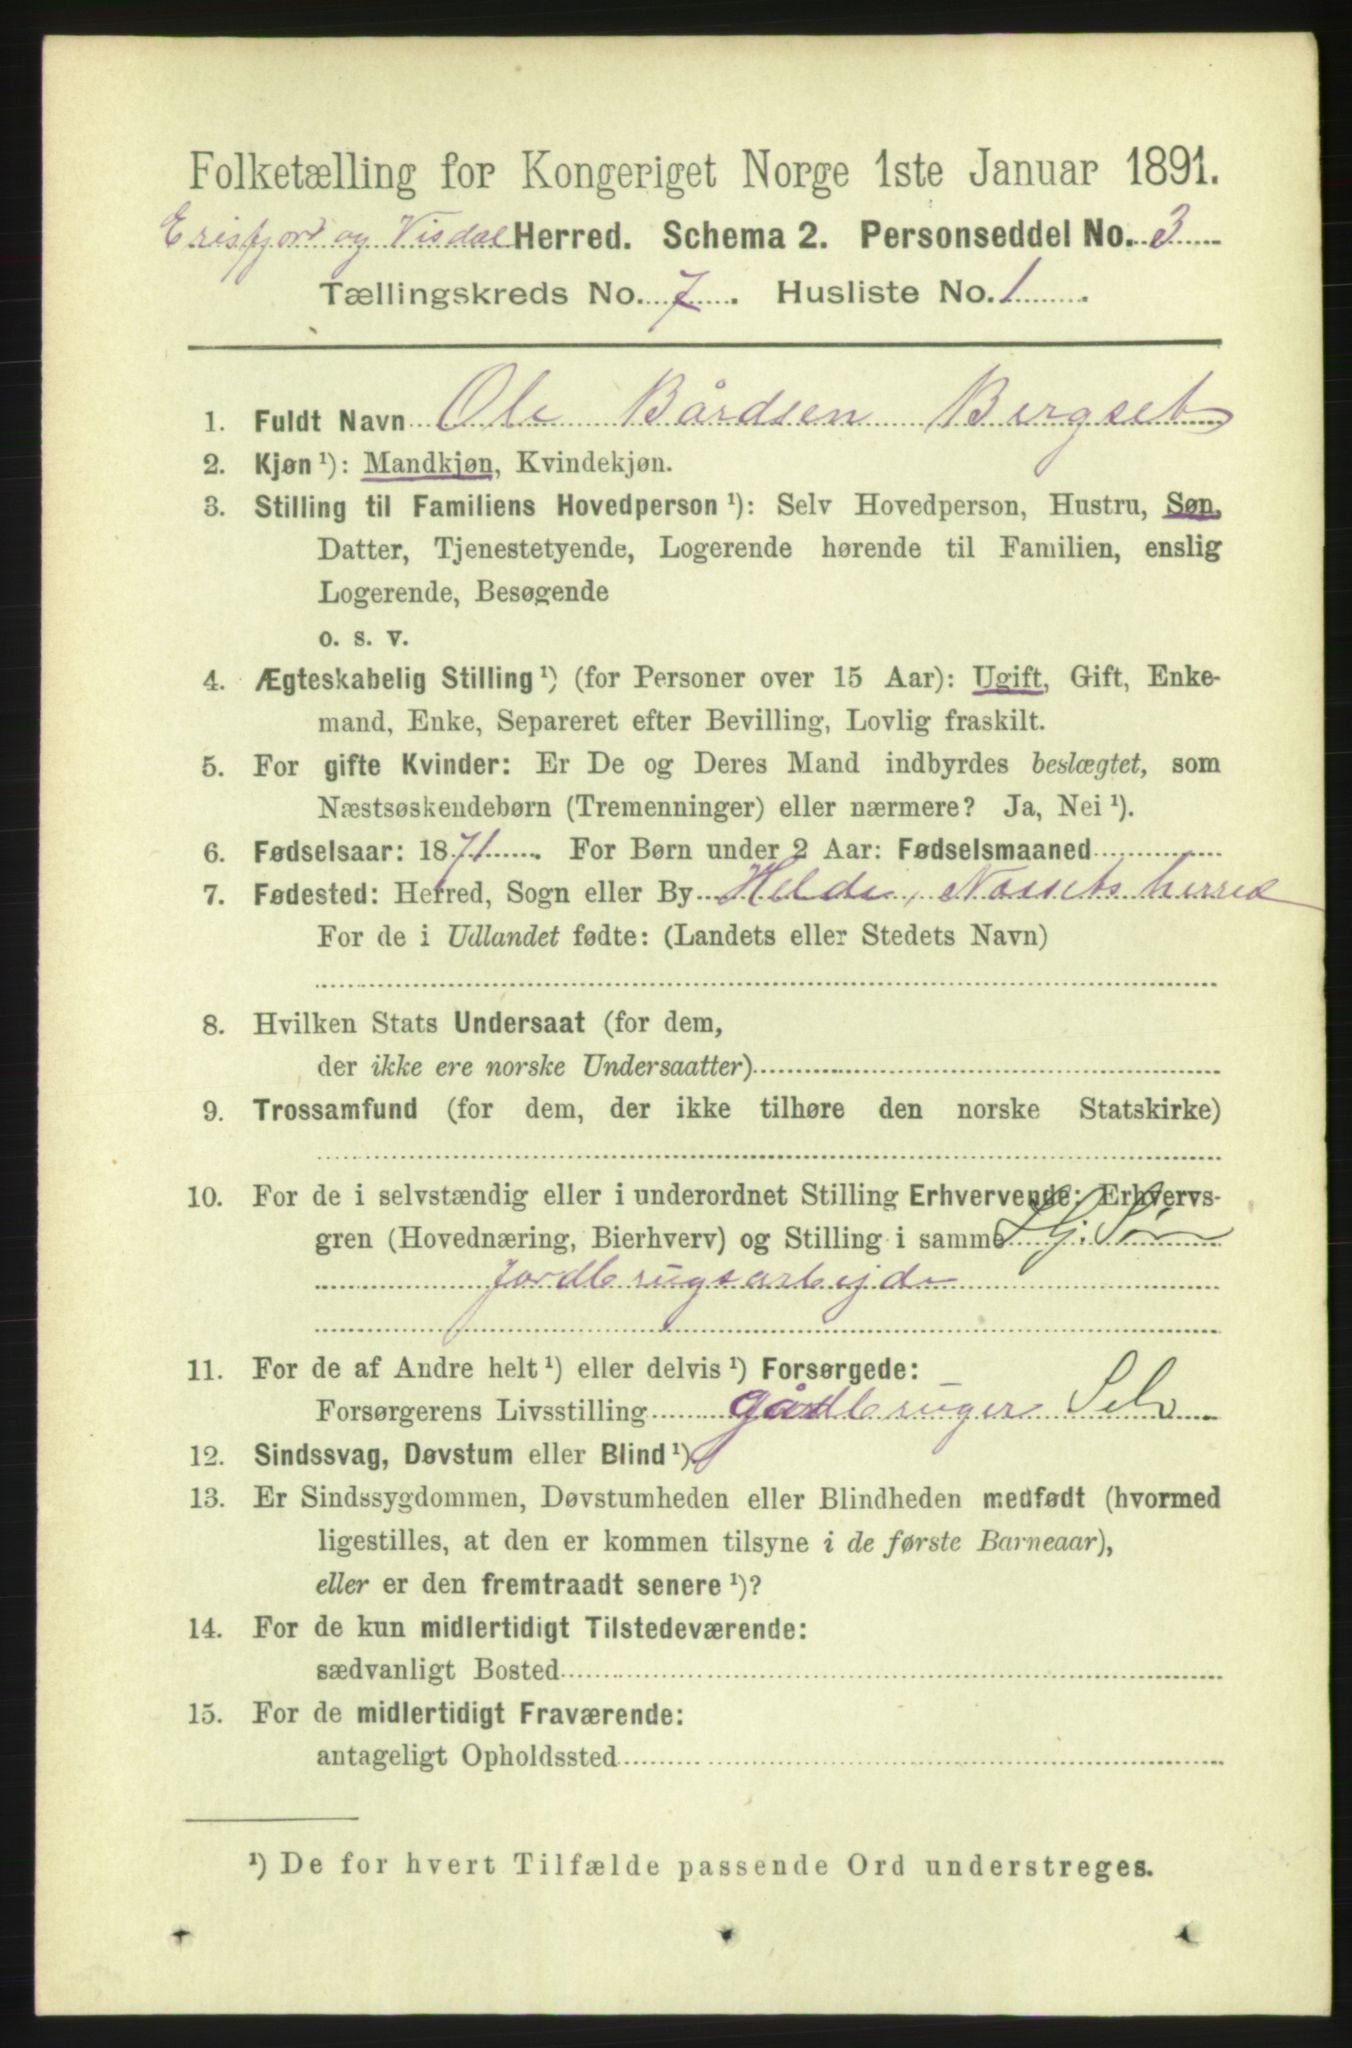 Folketælling for Kongeriget Norge 1ste Januar 1891.
Erisfjord og Visdal Herred. Schema 2. Personseddel No. 3
Tællingskreds No. 7. Husliste No. 1.
1. Fuldt Navn Ole Bårdsen Bergset
2. Kjøn ¹): Mandkjøn, Kvindekjøn.
3. Stilling til Familiens Hovedperson ¹): Selv Hovedperson, Hustru, Søn,
Datter, Tjenestetyende, Logerende hørende til Familien, enslig
Logerende, Besøgende
o. s. v.
4. Ægteskabelig Stilling ¹) (for Personer over 15 Aar): Ugift, Gift, Enke-
mand, Enke, Separeret efter Bevilling, Lovlig fraskilt.
5. For gifte Kvinder: Er De og Deres Mand indbyrdes beslægtet, som
Næstsøskendebørn (Tremenninger) eller nærmere? Ja, Nei ¹).
6. Fødselsaar: 1871. For Børn under 2 Aar: Fødselsmaaned
7. Fødested: Herred, Sogn eller By Helde, Nessets herred
For de i Udlandet fødte: (Landets eller Stedets Navn)
8. Hvilken Stats Undersaat (for dem,
der ikke ere norske Undersaatter)
9. Trossamfund (for dem, der ikke tilhøre den norske Statskirke)
10. For de i selvstændig eller i underordnet Stilling Erhvervende: Erhvervs-
gren (Hovednæring, Bierhverv) og Stilling i samme Gj. Søn
Jordbrugsarbejde
11. For de af Andre helt ¹) eller delvis ¹) Forsørgede:
Forsørgerens Livsstilling gårdbruger Selv
12. Sindssvag, Døvstum eller Blind ¹)
13. Er Sindssygdommen, Døvstumheden eller Blindheden medfødt (hvormed
ligestilles, at den er kommen tilsyne i de første Barneaar),
eller er den fremtraadt senere ¹)?
14. For de kun midlertidigt Tilstedeværende:
sædvanligt Bosted
15. For de midlertidigt Fraværende:
antageligt Opholdssted
¹) De for hvert Tilfælde passende Ord understreges.